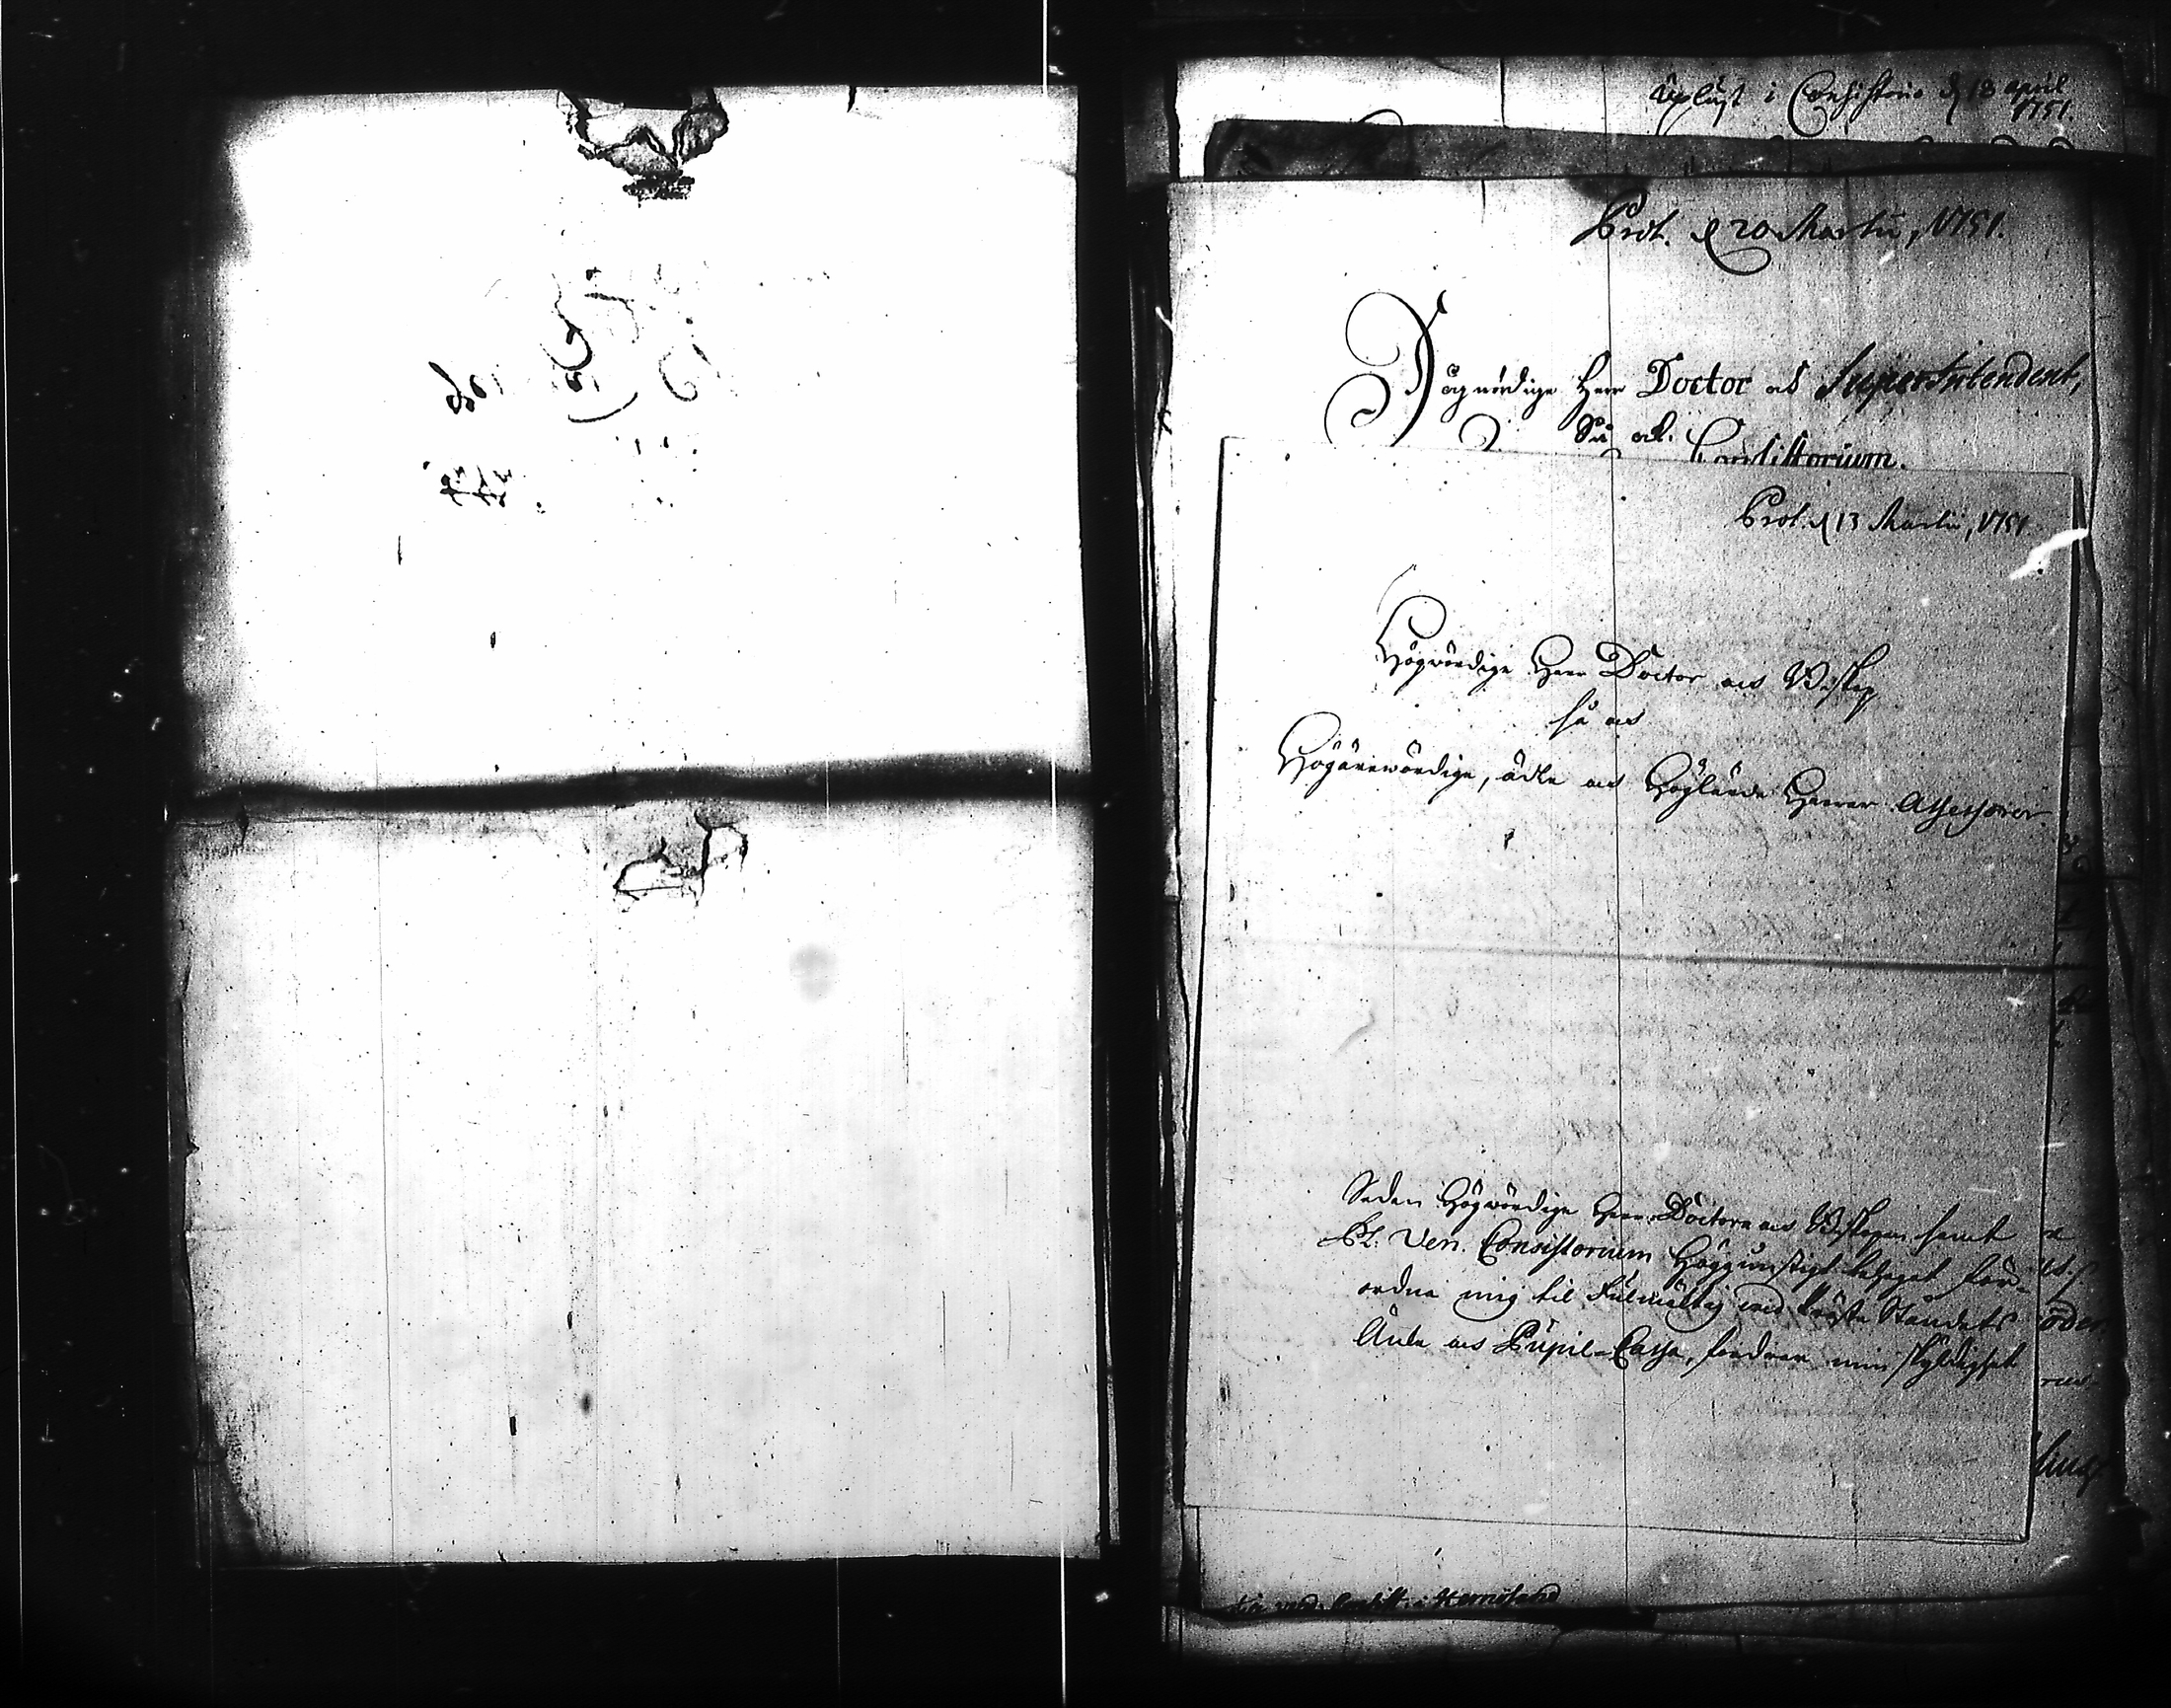 Upläst i Consistorio d 18 april
1751.
Prot. d 20 Martii, 1751.
Högwördige Herr Doctor och Superintendent,
Så och
Consistorium.
Prot. d 13 Martii, 1751
Högwördige Herr Doctor och Biskop
så och
Högärewördige, ädle och Höglärde Herrar Assessorer.
Sedan Högwördige Herr Doctorn och Biskopen samt
Pl. Ven. Consistorium Höggunstigt behagat för-
ordna mig til Fulmägtig wed Präste Ståndets
Änke och Pupil-Cassa, fordrar min skyldighet